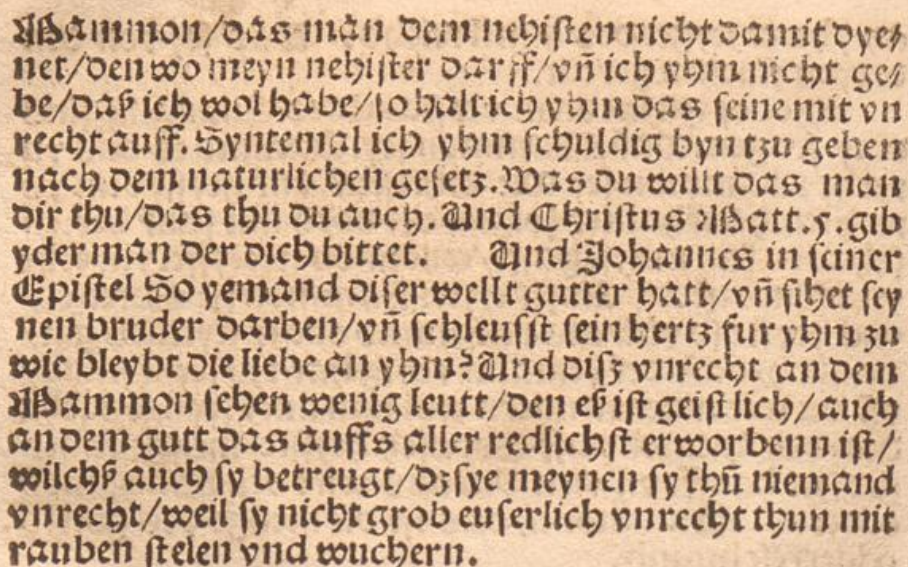 Mammon/das man dem nehiſten nicht damit dye⸗
net/den wo meyn nehiſter darff/vñ ich yhm nicht ge⸗
be/daß ich wol habe/ſo halt ich yhm das ſeine mit vn
recht auff. Syntemal ich yhm ſchuldig byn tzu geben
nach dem naturlichen geſetz. Was du willt das man
dir thu/das thu du auch. Und Chriſtus Matt. 5. gib
yder man der dich bittet. Und Johannes in ſeiner
Epiſtel So yemand diſer wellt gutter hatt/vñ ſihet ſey
nen bruder darben/vñ ſchleuſſt ſein hertz fur yhm zu
wie bleybt die liebe an yhm? Und diſz vnrecht an dem
Mammon ſehen wenig leutt/den eß iſt geiſtlich/auch
an dem gutt das auffs aller redlichſt erworbenn iſt/
wilchß auch ſy betreugt/dz ſye meynen ſy thū niemand
vnrecht/weil ſy nicht grob euſerlich vnrecht thun mit
rauben ſtelen vnd wuchern.